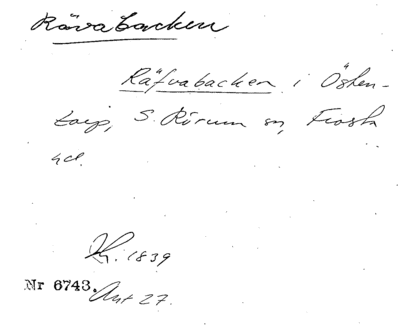 Rävabacken
Räfvabacken i Östen-
torp, S. Rörum sn, Frosta
hd.
Kr. 1839
Nr 6743. Akt 27.